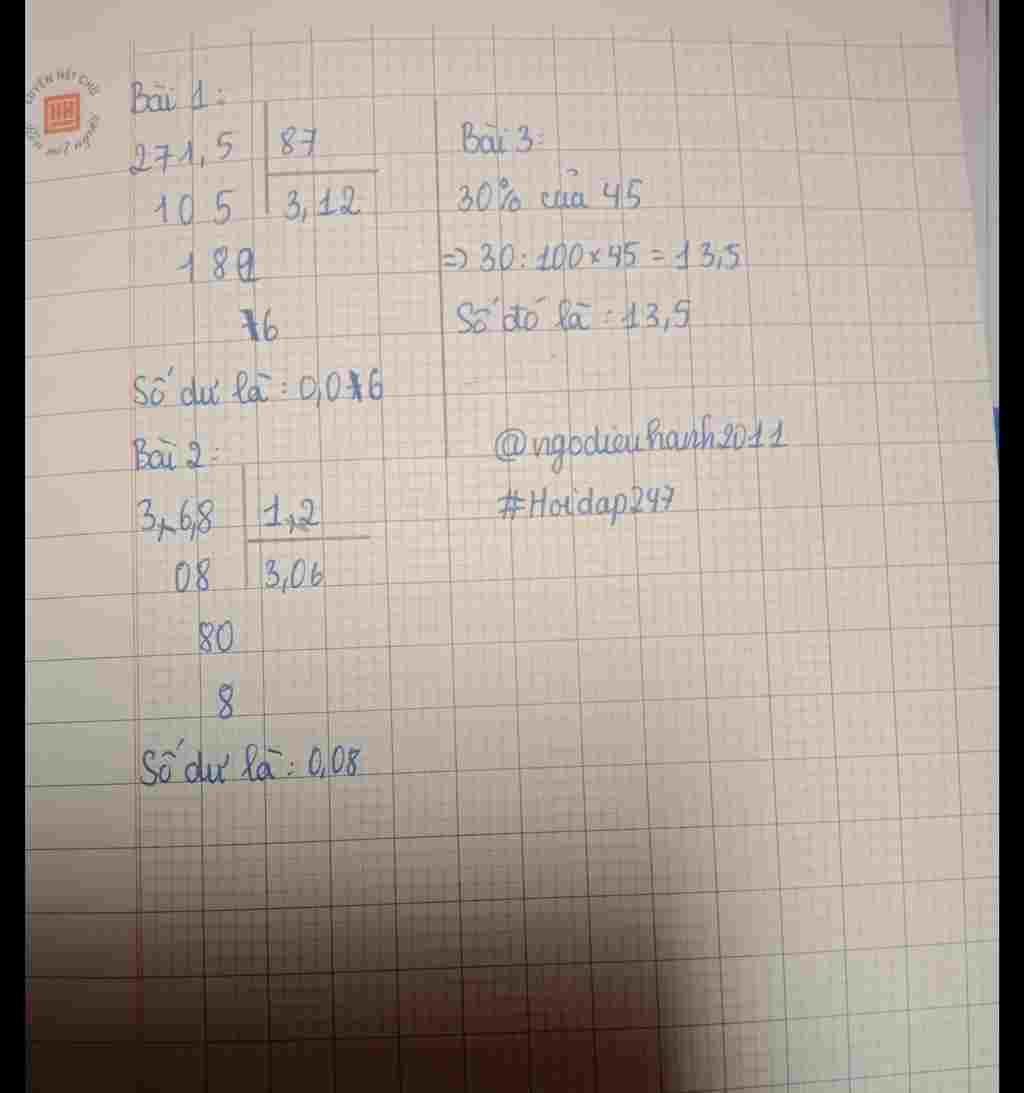 LUYỆN NÉT CHỮ
HH
Bài 1:
271,5 87
10 5 3,12
180
6
Số dư là: 0,06
Bài 2:
3,6,8 1,2
08 3,06
80
8
Số dư là: 0,08
Bài 3:
30% của 45
=> 30 : 100 × 45 = 13,5
Số đó là: 13,5
@ngodieuhanh2011
#Hoidap247